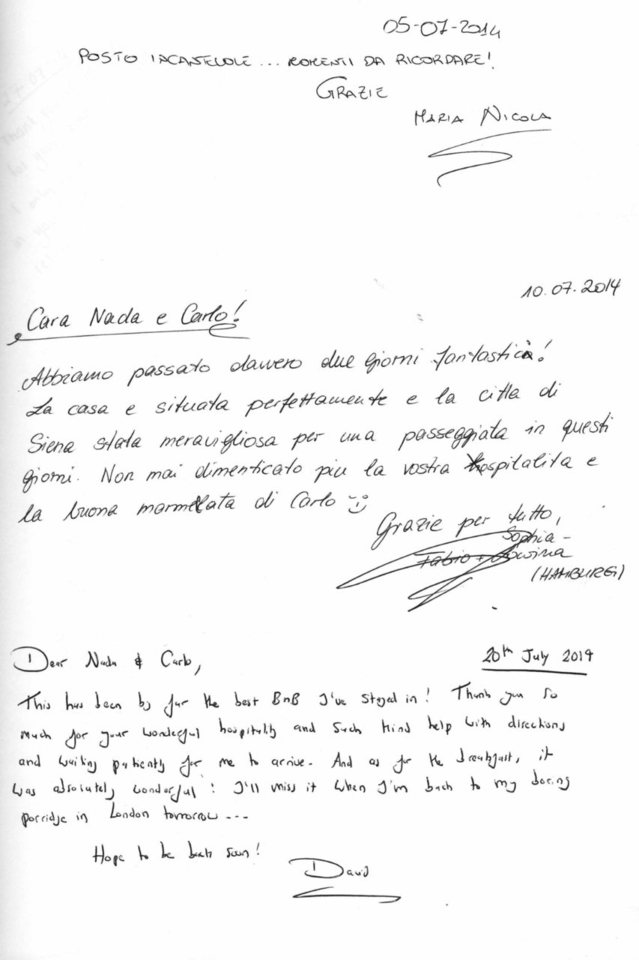 05-07-2014
POSTO INCANTEVOLE... MOMENTI DA RICORDARE!
GRAZIE
MARIA NICOLA
10.07.2014
Cara Nada e Carlo!
Abbiamo passato davvero due giorni fantastici!
La casa e situata perfettamente e la citta di
Siena stata meravigliosa per una passeggiata in questi
giorni. Non mai dimenticato piu la vostra hospitalita e
la buona marmelata di Carlo
Grazie per tutto,
Sophia-
Fabio +
(HAMBURG)
Dear Nada & Carlo,
20th July 2014
This has been by far the best BnB I've stayed in! Thank you so
much for your wonderful hospitality and such kind help with directions
and waiting patiently for me to arrive. And as for the breakfast, it
was absolutely wonderful! I'll miss it when I'm back to my boring
porridge in London tomorrow...
Hope to be back soon!
David